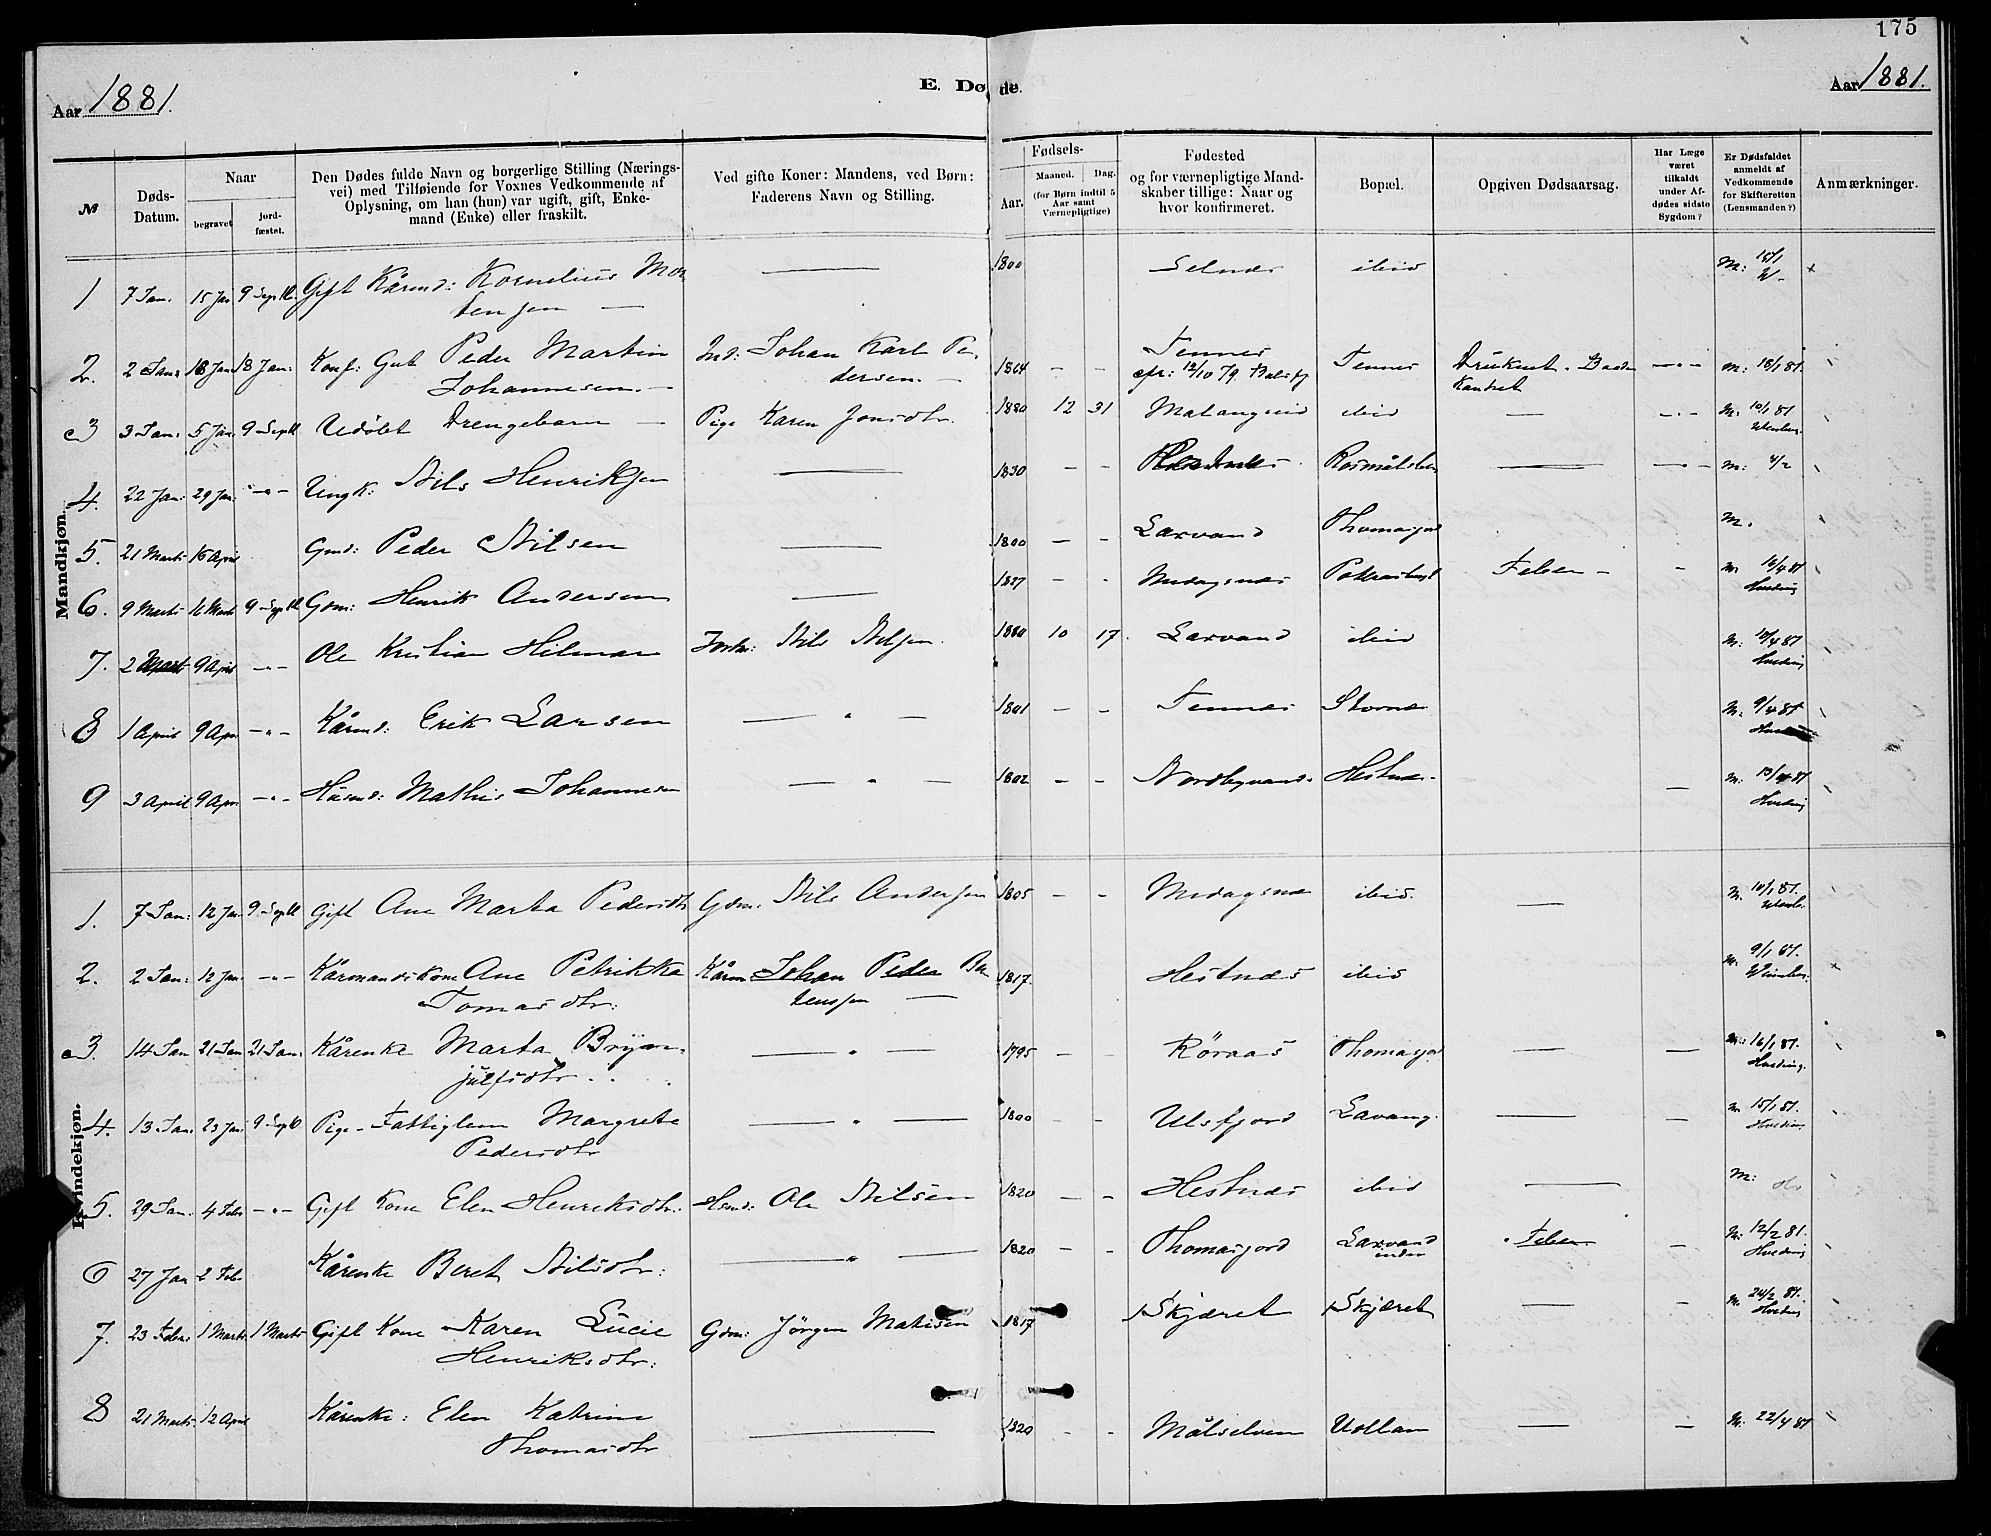 175
Aar 1881.
E. Døde.
Aar 1881.
№
Døds-Datum.
Naar
begravet
jord-fæstet.
Den Dødes fulde Navn og borgerlige Stilling (Nærings-
vei) med Tilføiende for Voxnes Vedkommende af
Oplysning, om han (hun) var ugift, gift, Enke-
mand (Enke) eller fraskilt.
Ved gifte Koner: Mandens, ved Børn:
Faderens Navn og Stilling.
Fødsels-
Aar.
Maaned. Dag.
(for Børn indtil 5
Aar samt
Værnepligtige)
Fødested
og for værnepligtige Mand-
skaber tillige: Naar og
hvor konfirmeret.
Bopæl.
Opgiven Dødsaarsag.
Har Læge
været
tilkaldt
under Af-
dødes sidste
Sygdom?
Er Dødsfaldet
anmeldt af
Vedkommende
for Skifteretten
(Lensmanden?)
Anmærkninger.
Mandkjøn.
1 7 Jan. 15 Jan 9 Septb. Gift Kårmd: Kornelius Mor
tensen — — 1800 Selnæs ibid M: 15/1
2. 2 Jan. 18 Jan 18 Jan. Konf: Gut Peder Martin Ind: Johan Karl Pe- 1864 - - Tennes Tennes Druknet. — " — M: 18/1 81.
Johannesen. — dersen. — cfr: 12/10 79. Balsfj Kantret
3 3 Jan: 5 Jan. 9 Septb Udøbt Drengebarn — Pige Karen Jonsdtr. 1880 12 31 Malangseid ibid — — " — M: 10/1 81
4. 22 Jan: 29 Jan. — " — Ungk: Nils Henriksen — 1830 - - Rosmålsbu — — " — M: 4/2
5. 21 Marts 16 April Gmd: Peder Nilsen — 1800 - - Larvand Thomasjord M.
6. 9 Marts 16 Marts 9 Septb Gdm: Henrik Andersen — 1827 - - Medagsnæs Feber — - M: 16/4 81
Hveding
7. 2 9 April — " — Ole Kristian Hilman Nils Nilsen. 1880 10 17. Larvand ibid M: 10/4 81
Hveding
8 1 April 9 Apr — " — Kårmd: Erik Larsen — " — 1801 - - Tennes Stornæs M: 9/4 81
9 3 April 9 Apr — " — Husmd: Mathis Johannesen — " — 1802 - - Nordbynæs Hestnæs. — M: 13/4 81
Hveding
Kvindekjøn.
1. 7 Jan: 12 Jan. 9 Septb Gift Ane Marta Pedersdtr Gdm: Nils Andersen 1805 - - Medagsnæs ibid. — M. 10/1 81.
2. 2 Jan: 12 Jan. — " — Kårmandskone Ane Petrikka Kårm Johan Peder Be 1817. Hestnæs ibid M. 9/1 81.
Tomasdtr. rensen —
3. 14 Jan 21 Jan 21 Jan: Kårenke Marta Bryn- — " — 1795 - - Röraas Thomasjord — — M: 16/1 81.
julfsdtr. Hveding.
4. 13 Jan. 23 Jan. 9 Septb Pige - Fattiglem Margrete — " — 1800 - - Ulsfjord Lavang. — — M. 15/1 81.
Pedersdtr Hveding
5. 29 Jan. 4 Febr — " — Gift Kone Elen Henriksdtr. Hsmd: Ole Nilsen 1820 - - Hestnæs ibid — M:
6 27 Jan 2 Febr Kårenke Beret Nilsdtr: — " — 1820 - - Thomasjord Larvand Feber — M: 12/2 81.
indre Hveding
7. 23 Febr: 1 Marts 1 Marts Gift Kone Karen Lucie Gdm: Jørgen Matisen 1817 Skjæret Skjæret — — M. 24/2 81.
Henriksdtr: Hveding
8 21 Marts 12 April Kårenke: Elen Katrine — 1820 - - Målselven Vollan — — M: 22/4 81
Thomasdtr